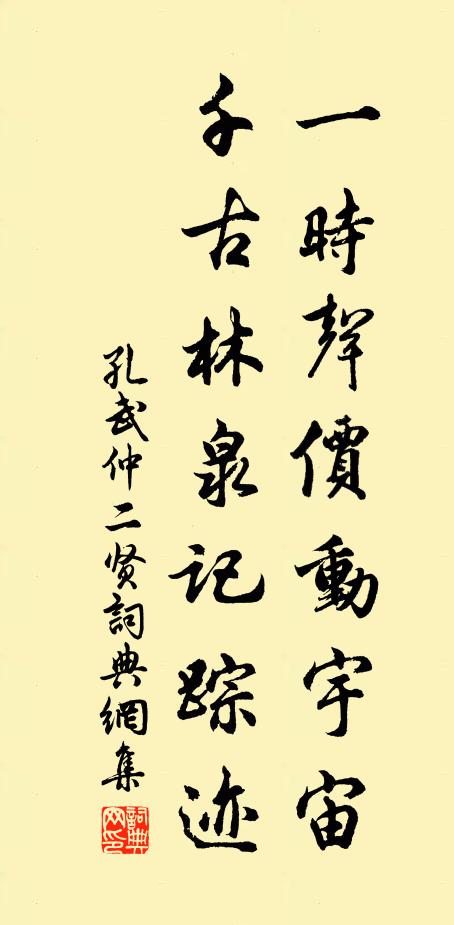 一時聲價動宇宙
千古林泉記踪迹
孔武仲二贤詞典網集
詞典網印